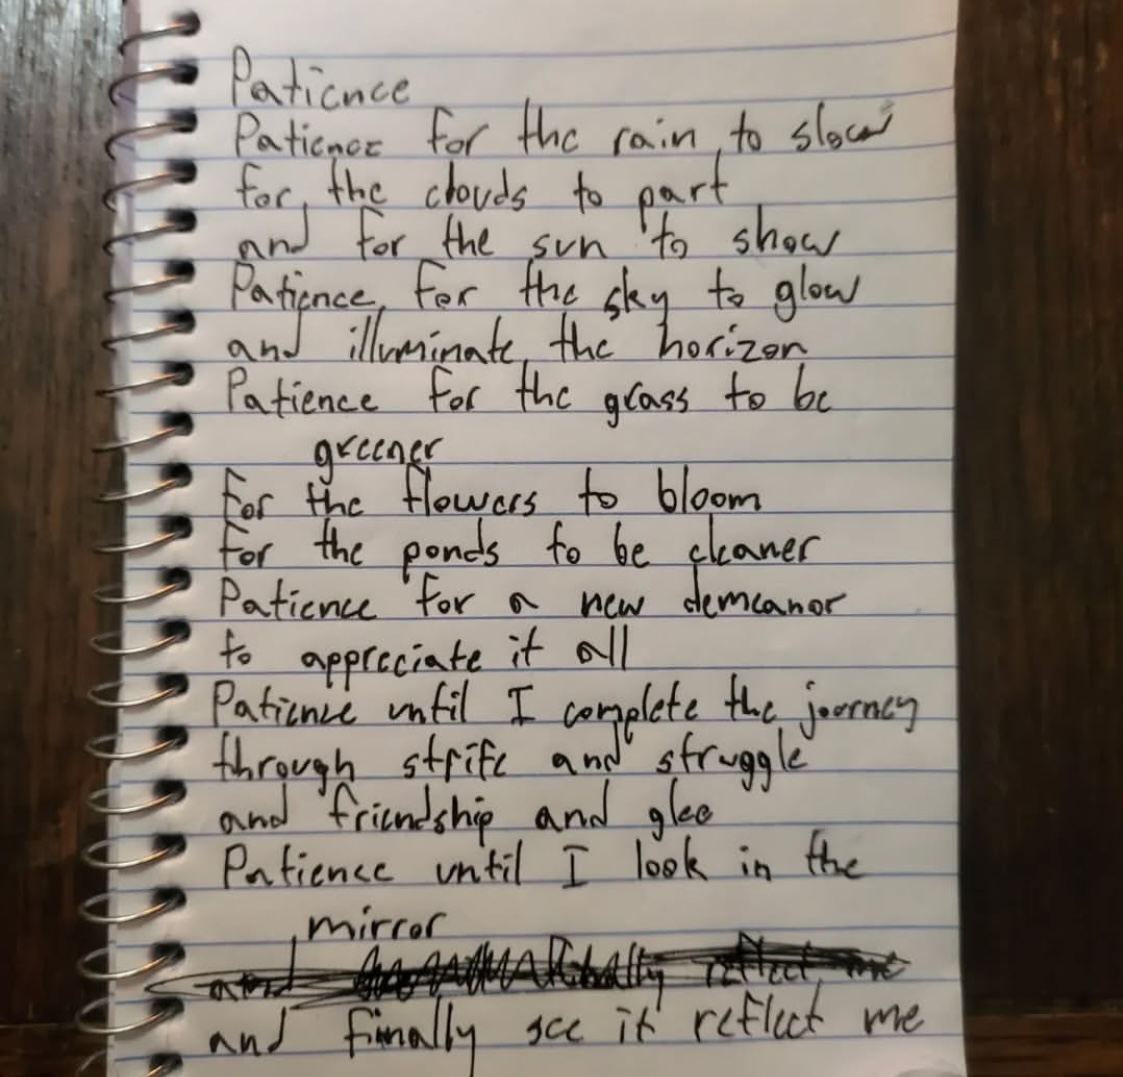 Patience
Patience for the rain to slow
for the clouds to part
and for the sun to show
Patience for the sky to glow
and illuminate the horizon
Patience for the grass to be
greener
For the flowers to bloom
For the ponds to be cleaner
Patience for a new demeanor
to appreciate it all
Patience until I complete the journey
through strife and struggle
and friendship and glee
Patience until I look in the
mirror
and finally reflect me
and finally see it reflect me